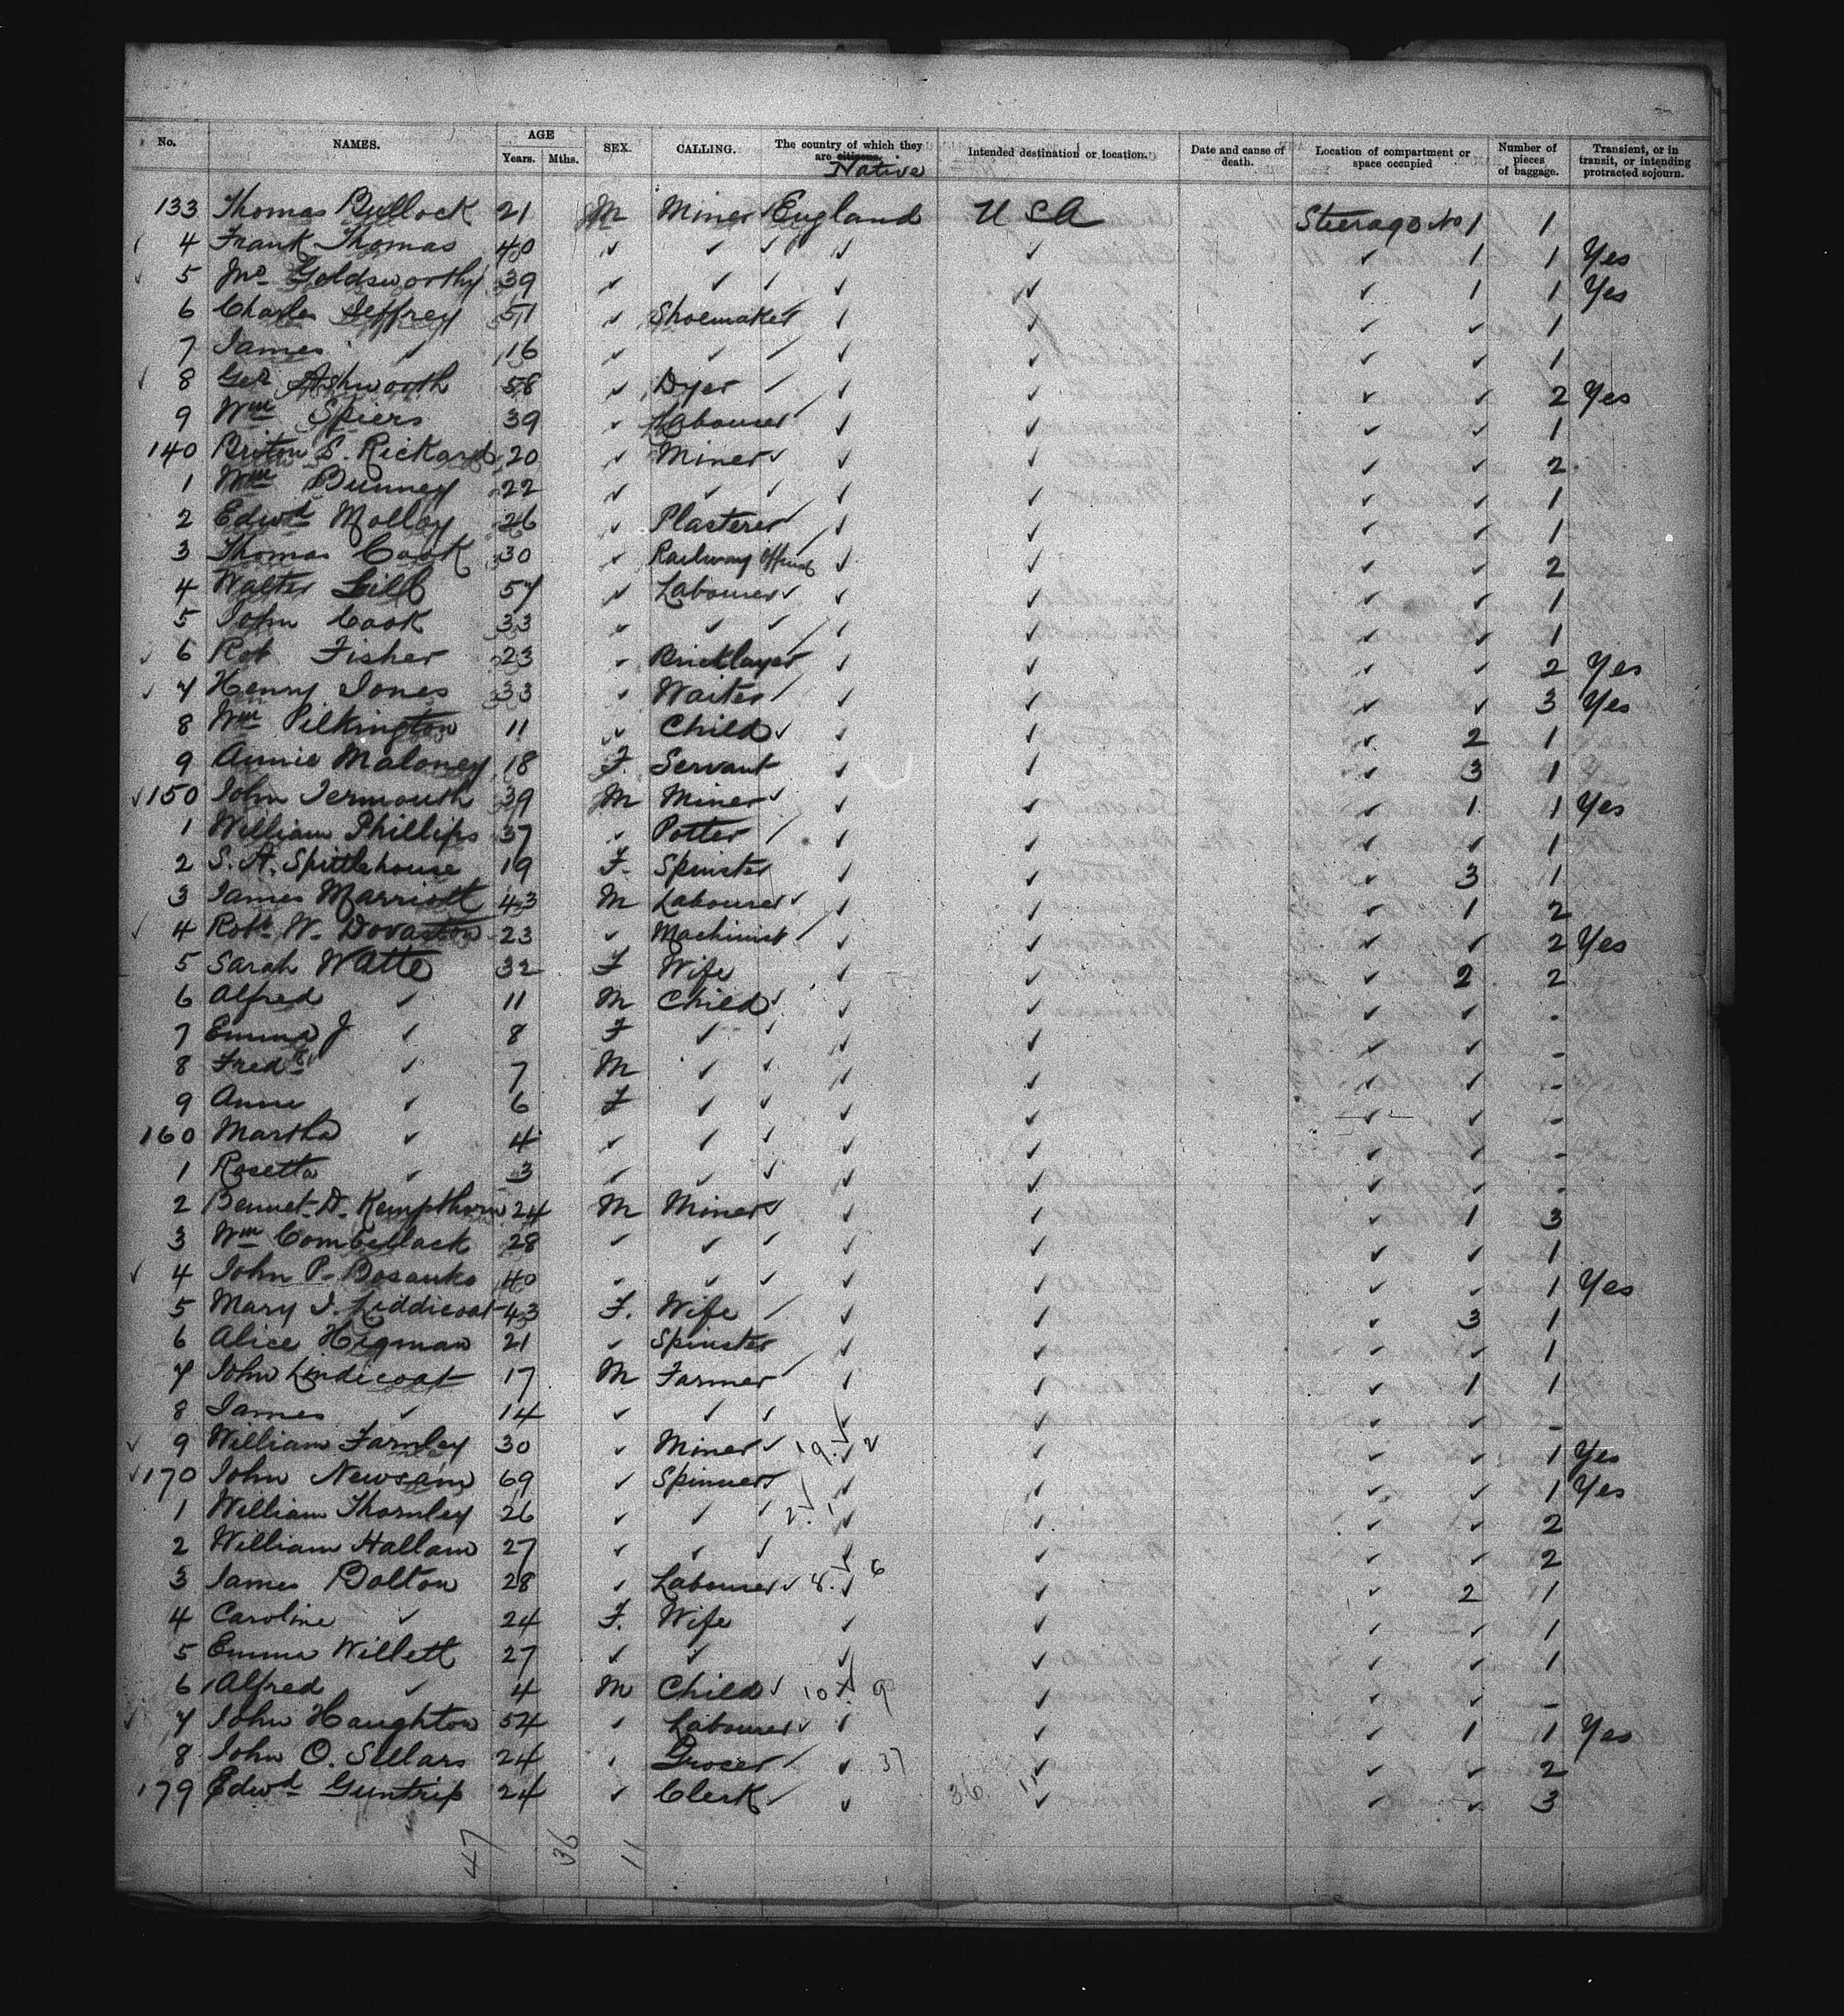 No. NAMES. AGE Years. Mths. SEX. CALLING. The country of which they are citizens. Native Intended destination or location. Date and cause of death. Location of compartment or space occupied Number of pieces of baggage. Transient, or in transit, or intending protracted sojourn.
133 Thomas Bullock 21 M Miner England U S A Steerage No 1 1
4 Frank Thomas 40 ✓ ✓ ✓ ✓ ✓ ✓ 1 1 Yes
5 Jno Goldsworthy 39 ✓ ✓ ✓ ✓ ✓ ✓ 1 1 Yes
6 Charles Jeffrey 51 ✓ Shoemaker ✓ ✓ ✓ ✓ 1
7 James ✓ 16 ✓ ✓ ✓ ✓ ✓ ✓ ✓ 1
8 Geo Ashworth 58 ✓ Dyer ✓ ✓ ✓ ✓ 2 Yes
9 Wm Spiers 39 ✓ Labourer ✓ ✓ ✓ ✓ 1
140 Briton S. Rickard 20 ✓ Miner ✓ ✓ ✓ ✓ 2
1 Wm Bunney 22 ✓ ✓ ✓ ✓ ✓ ✓ ✓ 1
2 Edwd Molloy 26 ✓ Plasterer ✓ ✓ ✓ ✓ 1
3 Thomas Cook 30 ✓ Railway Official ✓ ✓ ✓ ✓ 2
4 Walter Lill 57 ✓ Labourer ✓ ✓ ✓ ✓ 1
5 John Cook 33 ✓ ✓ ✓ ✓ ✓ ✓ ✓ 1
6 Rob Fisher 23 ✓ Bricklayer ✓ ✓ ✓ ✓ 2 Yes
7 Henry Jones 33 ✓ Waiter ✓ ✓ ✓ ✓ 3 Yes
8 Wm Pilkington 11 ✓ Child ✓ ✓ ✓ 2 1
9 Annie Maloney 18 F. Servant ✓ ✓ ✓ 3 1
150 John Jermouth 39 M Miner ✓ ✓ ✓ 1 1 Yes
1 William Phillips 37 ✓ Potter ✓ ✓ ✓ ✓ 1
2 S. A. Spittlehouse 19 F. Spinster ✓ ✓ ✓ 3 1
3 James Marriott 43 M Labourer ✓ ✓ ✓ 1 2
4 Robt W. Dovaston 23 ✓ Machinist ✓ ✓ ✓ ✓ 2 Yes
5 Sarah Watte 32 F Wife ✓ ✓ ✓ 2 2
6 Alfred ✓ 11 M Child ✓ ✓ ✓ ✓ -
7 Emma J ✓ 8 F ✓ ✓ ✓ ✓ ✓ ✓ -
8 Fredk ✓ 7 M ✓ ✓ ✓ ✓ ✓ ✓ -
9 Anne ✓ 6 F ✓ ✓ ✓ ✓ ✓ ✓ -
160 Martha ✓ 4 ✓ ✓ ✓ ✓ ✓ ✓ ✓ -
1 Rosetta ✓ 3 ✓ ✓ ✓ ✓ ✓ ✓ ✓ -
2 Bennet D. Kempthorn 24 M Miner ✓ ✓ ✓ 1 3
3 Wm Combellack 28 ✓ ✓ ✓ ✓ ✓ ✓ ✓ 1
4 John P. Bosanko 40 ✓ ✓ ✓ ✓ ✓ ✓ ✓ 1 Yes
5 Mary J. Liddicoat 43 F. Wife ✓ ✓ ✓ 3 1
6 Alice Higman 21 ✓ Spinster ✓ ✓ ✓ ✓ 1
7 John Lindicoat 17 M Farmer ✓ ✓ ✓ 1 1
8 James ✓ 14 ✓ ✓ ✓ ✓ ✓ ✓ ✓ -
9 William Farnley 30 ✓ Miner 19. ✓ 2 ✓ ✓ ✓ 1 Yes
170 John Newsam 69 ✓ Spinner ✓ ✓ ✓ ✓ 1 Yes
1 William Thornley 26 ✓ ✓ ✓ 2. 1 ✓ ✓ ✓ ✓ 2
2 William Hallam 27 ✓ ✓ ✓ ✓ ✓ ✓ 2
3 James Bolton 28 ✓ Labourer 8. ✓ 6 ✓ ✓ 2 1
4 Caroline ✓ 24 F. Wife ✓ ✓ ✓ ✓ 1
5 Emma Willett 27 ✓ ✓ ✓ ✓ ✓ ✓ 1
6 Alfred ✓ 4 M Child 10 ✓ 9 ✓ ✓ ✓ -
7 John Haughton 54 ✓ Labourer ✓ ✓ ✓ 1 1 Yes
8 John O. Sellars 24 ✓ Grocer ✓ 37 ✓ ✓ ✓ 2
179 Edwd Guntrip 24 ✓ Clerk ✓ 36 11 ✓ ✓ ✓ 3
47 36 11